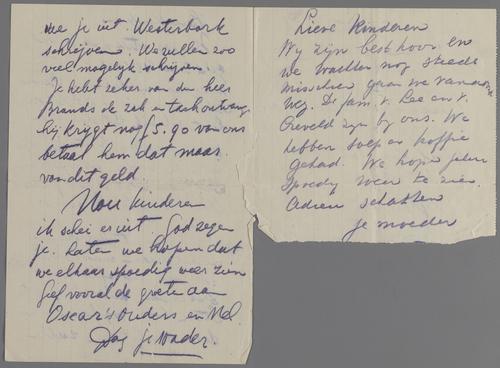 we je uit Westerbork
schrijven. We zullen zoo
veel mogelyk schrijven
Je hebt zeker van den heer
Brands de zak en tasch ontvang.
hij krijgt nog f 5.90 van ons
betaal hem dat maar
van dit geld.
Nou kinderen
ik schei er uit God zegen
je. Laten we hopen dat
we elkaar spoedig weer zien
Geef vooral de groete aan
Oscar's ouders en Nel.
Dag je vader
Lieve Kinderen
Wy zijn best hoor en
we wachten nog steeds
misschien gaan we vanavond
weg. De fam. v. Lee en v.
Creveld zyn by ons. We
hebben soep en koffie
gehad. We hopen jullie
spoedig weer te zien.
Adieu schatten
je moeder